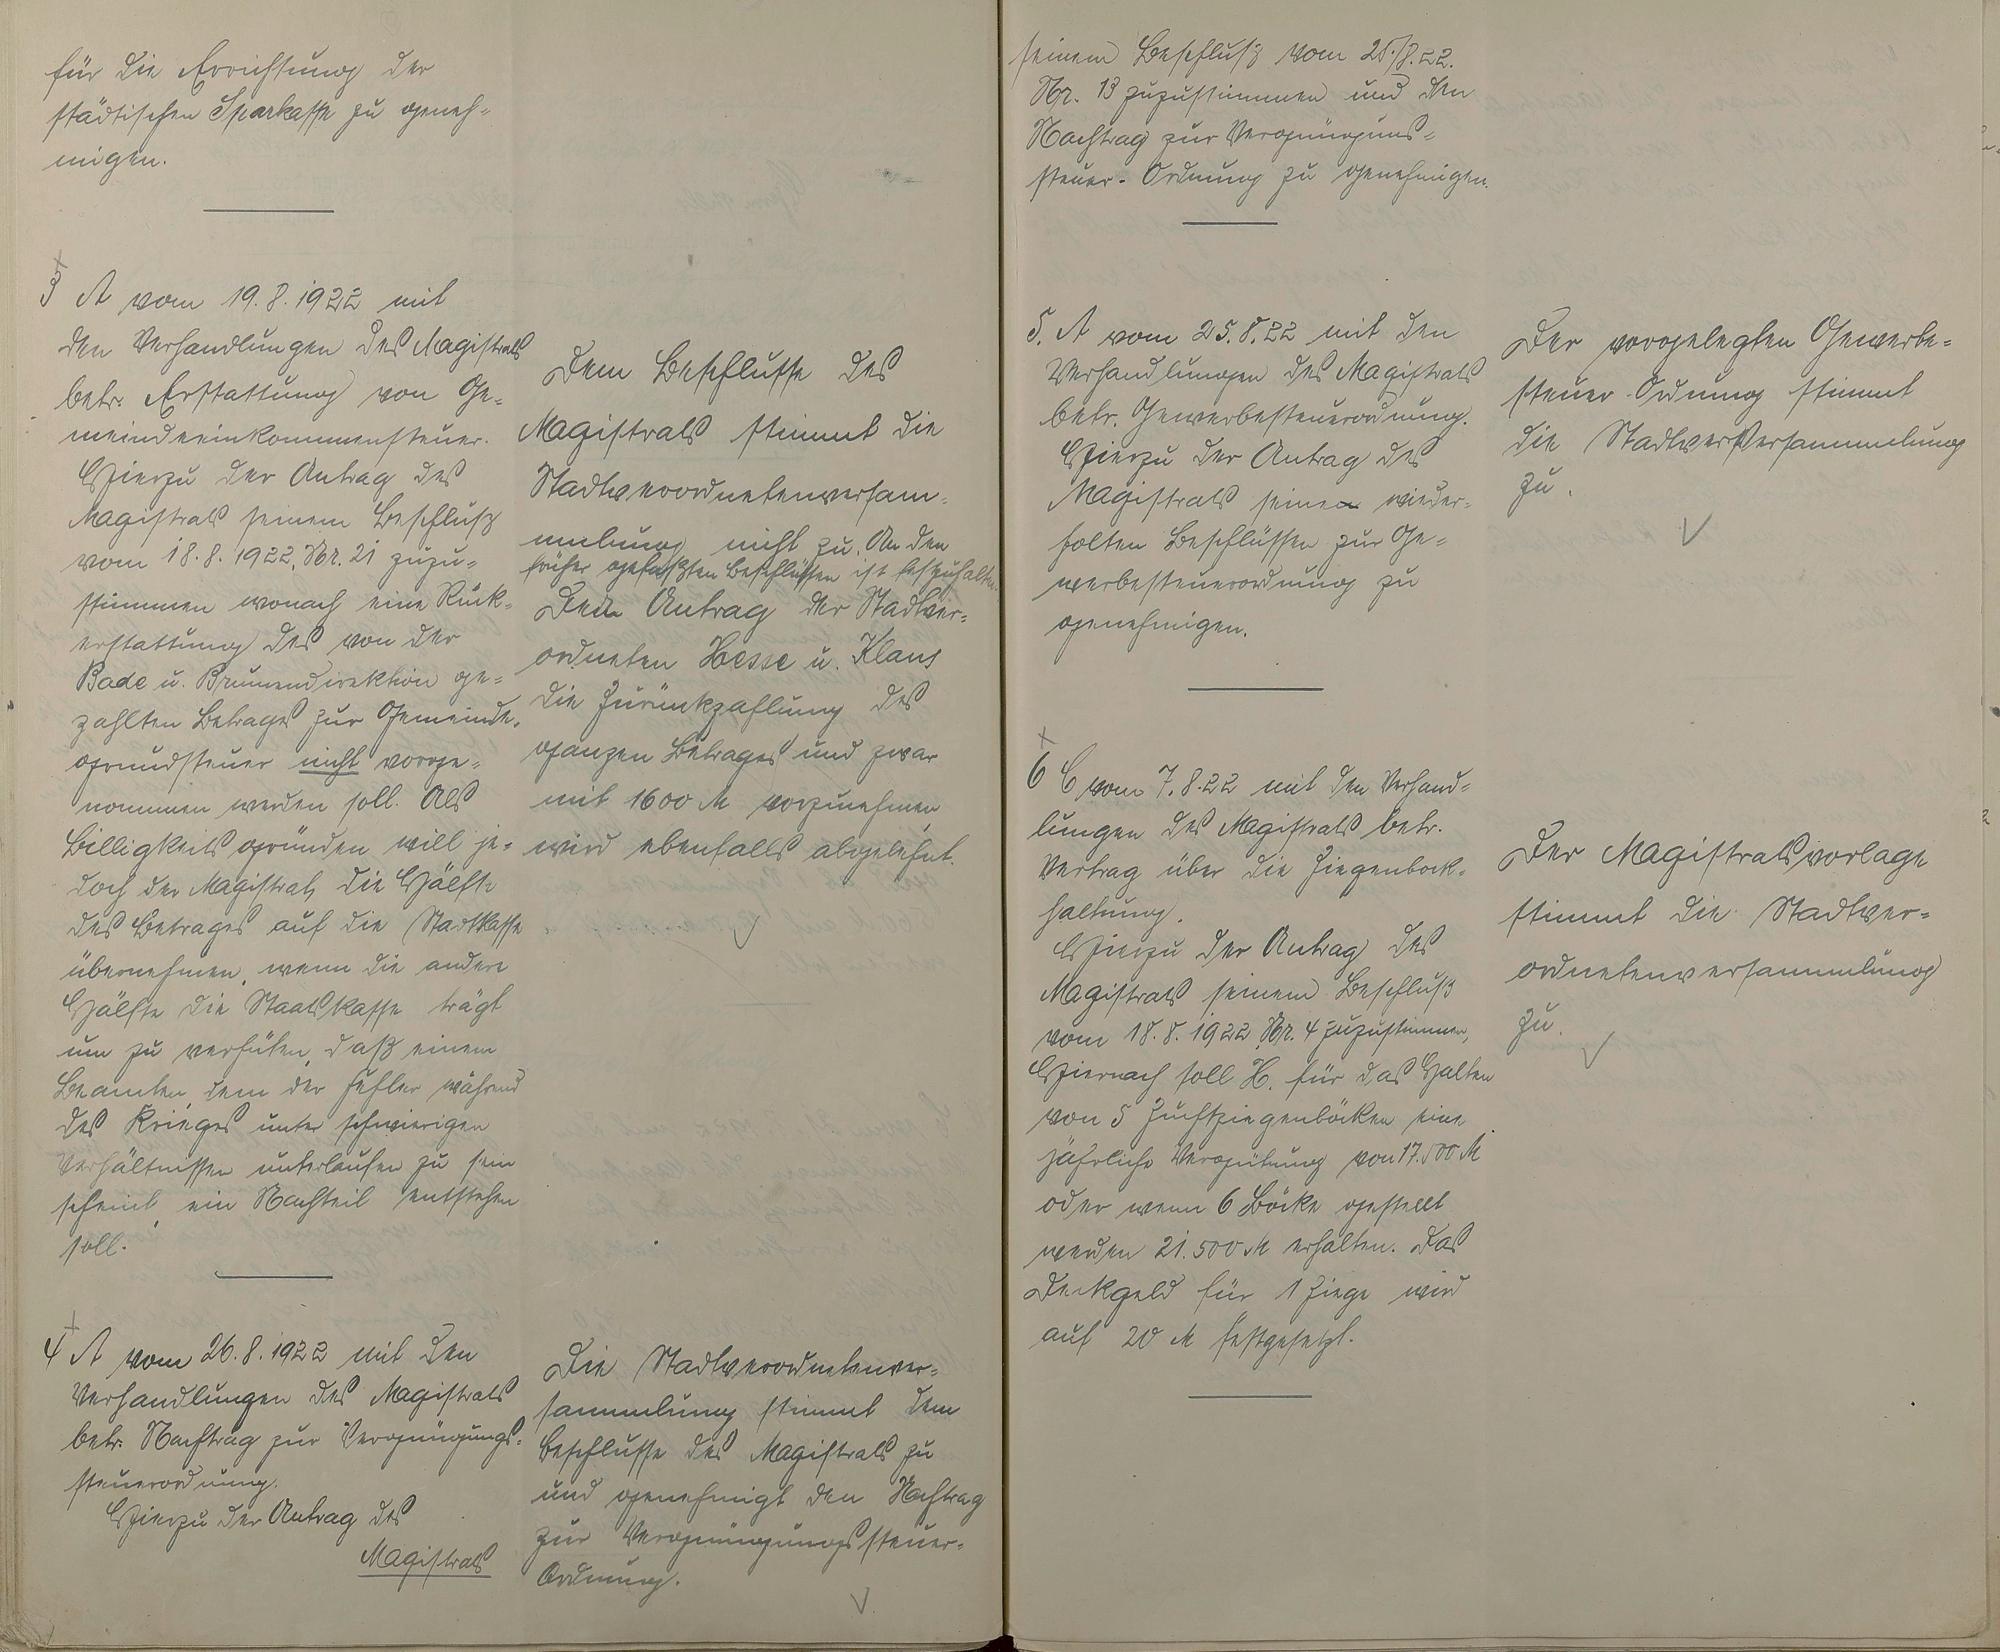 für die Errichtung der
städtischen Sparkasse zu geneh-
migen.
3 A vom 19.8.1922 mit
den Verhandlungen des Magistrats
betr. Erstattung von Ge-
meindeeinkommensteuer.
Hierzu der Antrag des
Magistrats seinem Beschluß
vom 18.8.1922, Nr. 21 zuzu-
stimmen wonach eine Rück-
erstattung des von der
Bade u. Brunnendirektion ge-
zahlten Betrages zur Gemeinde-
grundsteuer nicht vorge-
nommen werden soll. Als
Billigkeitsgründen will je-
doch der Magistrat, die Hälfte
des Betrages auf die Stadtkasse
übernehmen, wenn die andere
Hälfte die Staatskasse trägt
um zu verhüten, daß einem
Beamten, dem der Fehler während
des Krieges unter schwierigen
Verhältnissen unterlaufen zu sein
scheint, ein Nachteil entstehen
soll.
Dem Beschlusse des
Magistrats stimmt die
Stadtverordnetenversam-
mlung nicht zu. An den
früher gefaßten Beschlüssen ist festzuhalten.
Den Antrag der Stadtver-
ordneten Hesse u. Klaus
die Zurückzahlung des
ganzen Betrages und zwar
mit 1600 M vorzunehmen
wird ebenfalls abgelehnt.
4 A vom 26.8.1922 mit den
Verhandlungen des Magistrats
betr. Nachtrag zur Vergnügungs-
steuerordnung.
Hierzu der Antrag des
Magistrats
Die Stadtverordnetenver-
sammlung stimmt dem
Beschlusse des Magistrats zu
und genehmigt den Nachtrag
zur Vergnügungssteuer-
Ordnung.
seinem Beschluß vom 25./8.22.
Nr. 13 zuzustimmen und den
Nachtrag zur Vergnügungs-
steuer-Ordnung zu genehmigen.
5. A vom 25.8.22 mit den
Verhandlungen des Magistrats
betr. Gewerbesteuerordnung.
Hierzu der Antrag des
Magistrats seinen wieder-
holten Beschlüssen zur Ge-
werbesteuerordnung zu
genehmigen.
Der vorgelegten Gewerbe-
steuer-Ordnung stimmt
die Stadtver. Versammlung
zu.
6 C vom 7.8.22 mit den Verhand-
lungen des Magistrats betr.
Vertrag über die Ziegenbock-
haltung.
Hierzu der Antrag des
Magistrats seinem Beschluß
vom 18.8.1922 Nr. 4 zuzustimmen,
Hiernach soll H. für das Halten
von 5 Zuchtziegenböcken eine
jährliche Vergütung von 17.500 M
oder wenn 6 Böcke gestellt
werden 21.500 M erhalten. Das
Deckgeld für 1 Ziege wird
auf 20 M festgesetzt.
Der Magistratsvorlage
stimmt die Stadtver-
ordnetenversammlung
zu.